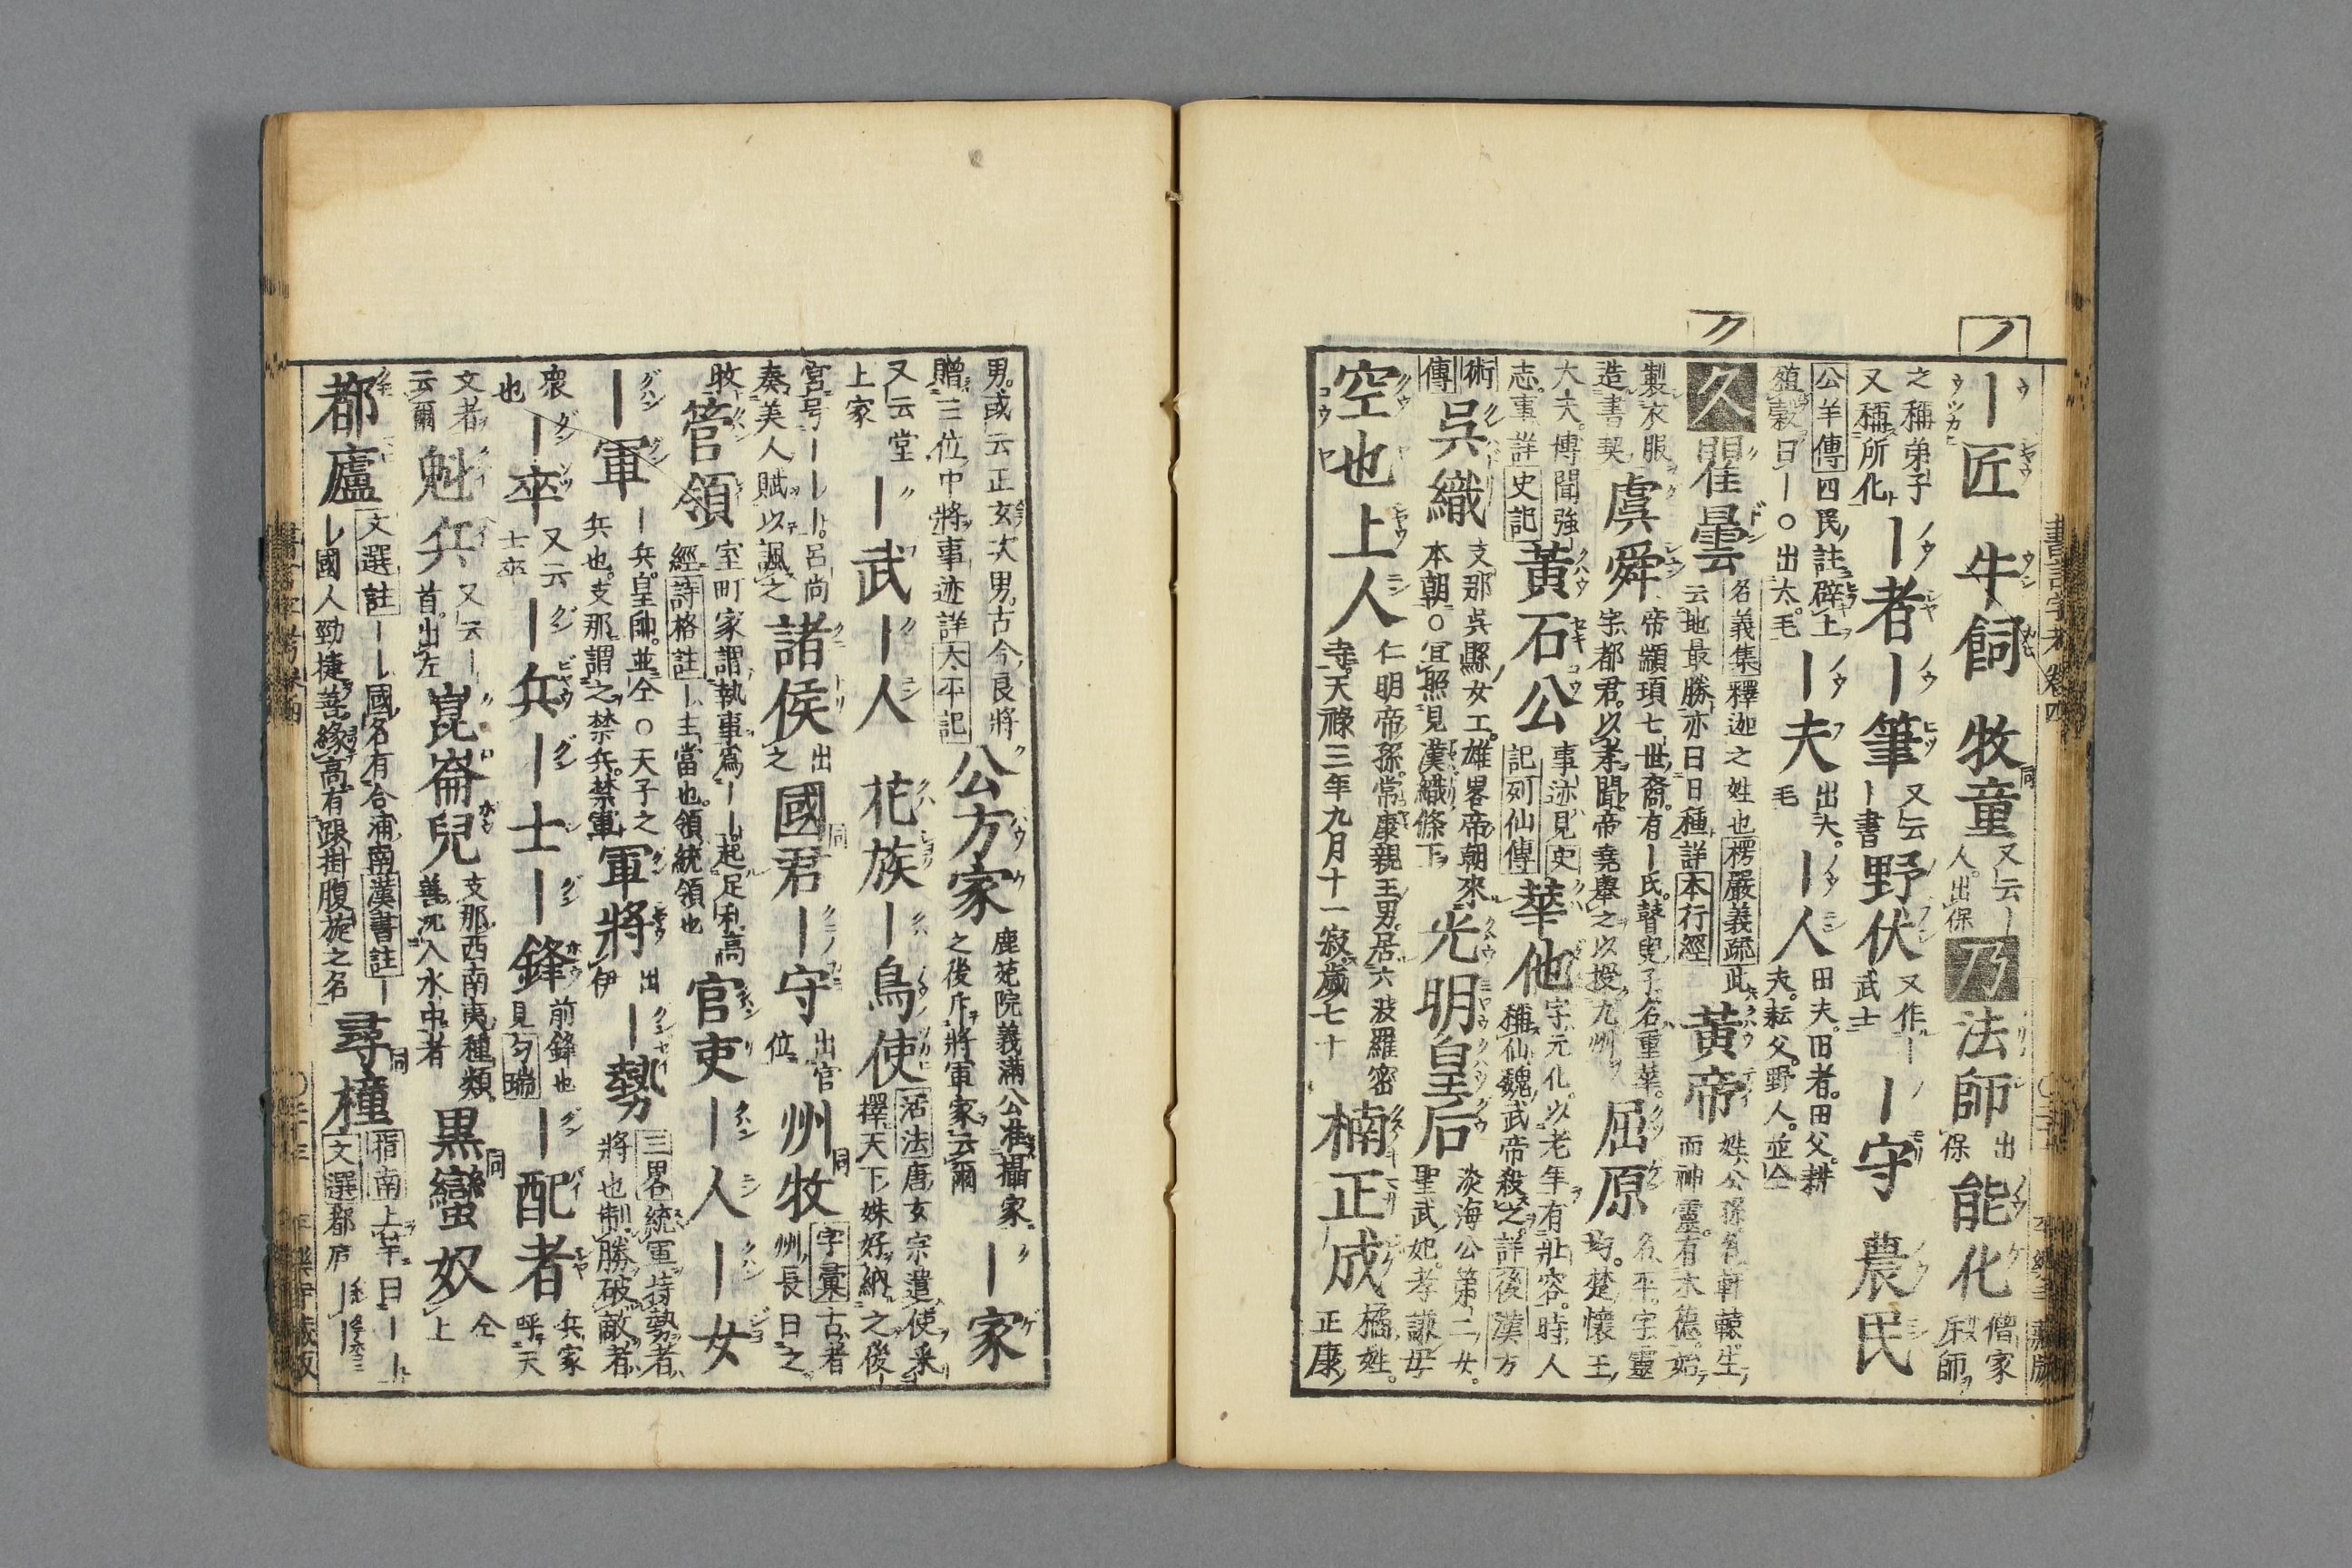 ノ
｜匠 牛飼 牧童 又云｜人出保 乃 法師 出保 能化 僧家所師
之稱弟子又稱所化 ｜者 ｜筆 又云｜書 野伏 又作｜武士 ｜守 農民
公羊傳四民註辟土殖穀曰｜○出太毛 ｜夫 出太毛 ｜人 田夫田者田父耕夫耘父野人並仝
ク
久 瞿曇 名義集釋迦之姓也楞嚴義疏此云地最勝亦曰日種詳本行經 黃帝 姓公孫名軒轅生而神靈有木德始
製衣服造書契 虞舜 帝顓頊七世裔有｜氏瞽叟子名重華字都君以孝聞帝堯擧之以授九州 屈原 名平字靈均楚懷王
大夫博聞強志事詳史記 黃石公 事迹見史記列仙傳 華他 字元化以老年有壯容時人稱仙魏武帝殺之詳後漢方
術傳 吳織 支那吳縣女工雄畧帝朝來本朝○宜照見漢織條下 光明皇后 淡海公第二女聖武妃孝謙母
空也上人 仁明帝孫常康親王男居六波羅密寺天祿三年九月十一寂歲七十 楠正成 橘姓正康
男或云正玄次男古今良將贈三位中將事迹詳太平記 公方家 鹿苑院義滿公准攝家之後斥將軍家云爾 ｜家
又云堂上家 ｜武 ｜人 花族 ｜鳥使 活法唐玄宗遣使釆擇天下姝好納之後
宮号｜｜｜呂尚奏美人賦以諷之 諸侯 出之 國君 同 ｜守 出官位 州牧 同 字彙古者州長曰之
牧 管領 室町家謂執事爲｜｜起足利高經詩格註｜主當也領統領也 官吏 ｜人 ｜女
｜軍 ｜兵皇帥並仝○天子之兵也支那謂之禁兵禁軍 軍將 出伊 ｜勢 三畧統軍持勢者將也制勝破敵者
衆也 ｜卒 又云士卒 ｜兵 ｜士 ｜鋒 前鋒也見勻瑞 ｜配者 兵家呼天
文者云爾 魁兵 又云｜首出左 崑崙兒 支那西南夷種類善沉入水中者 黑蠻奴 同 仝上
都廬 文選註｜｜國名有合浦南漢書註｜｜國人勁捷善緣高有跟掛腹旋之名 尋橦 同 指南上竿曰｜｜文選都廬